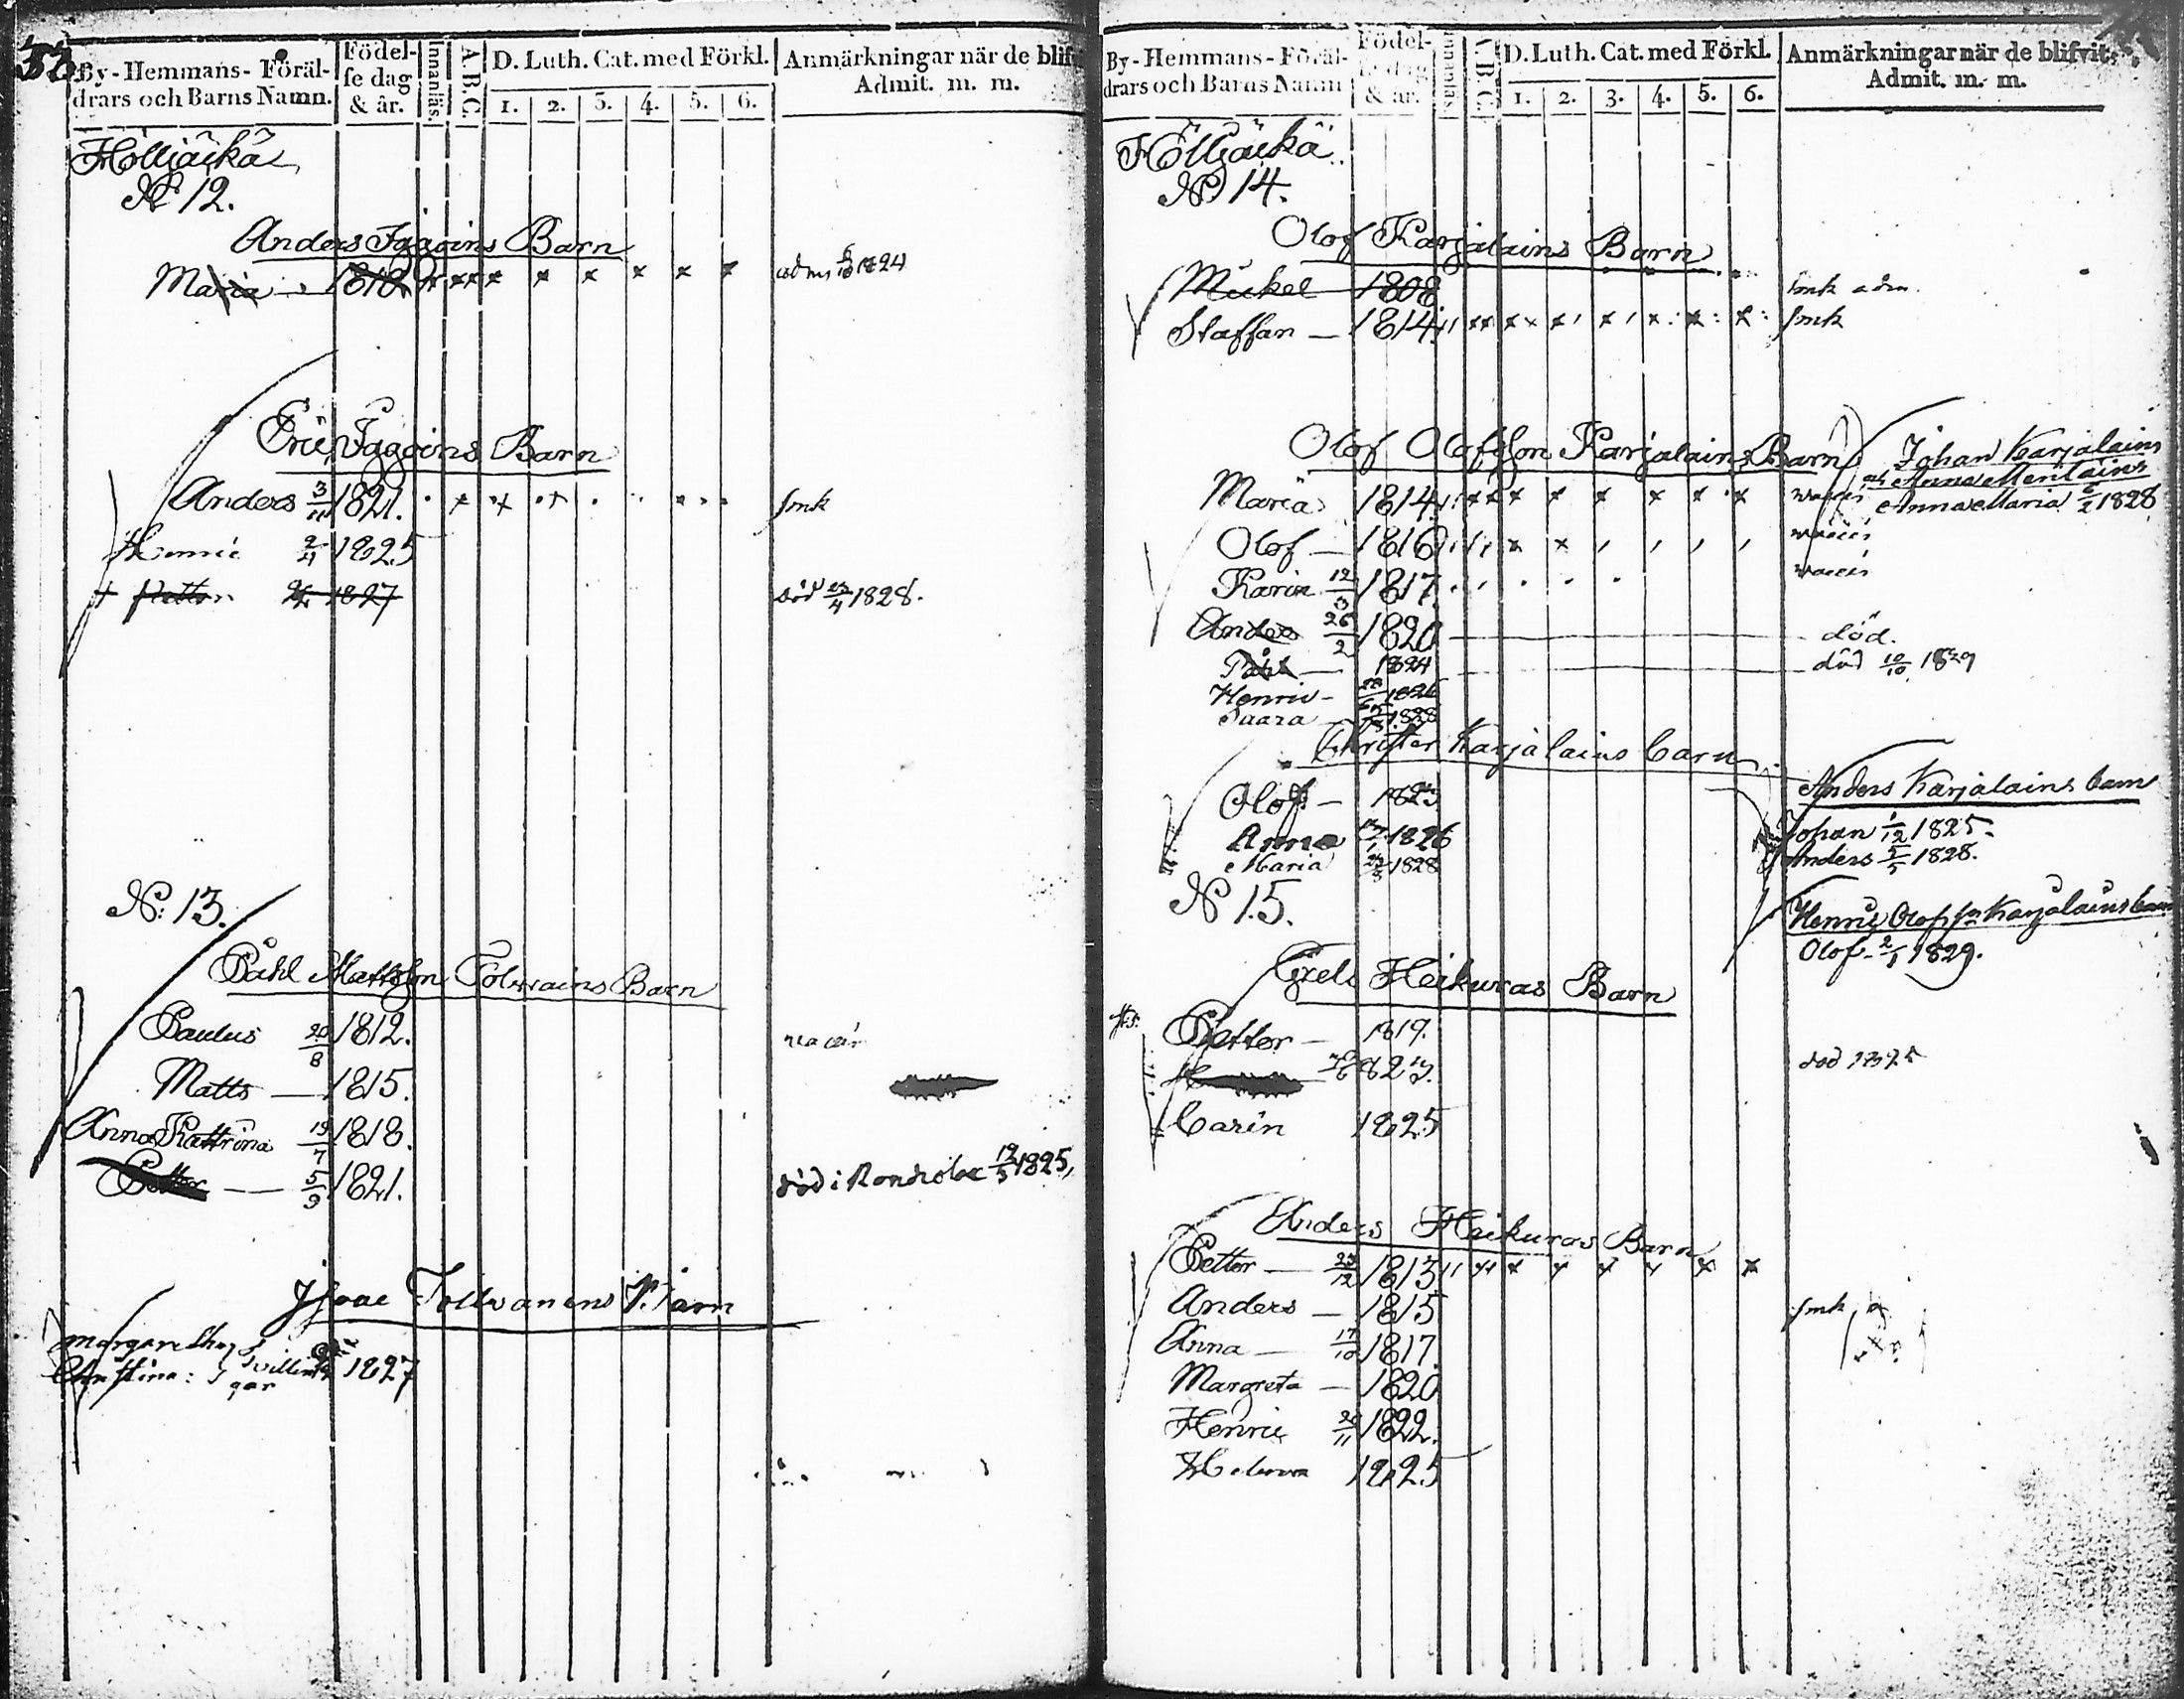 By-Hemmans-Föräl-
drars och Barns Namn.
Födel-
se dag
& år.
Innanläs.
A B C.
D. Luth. Cat. med Förkl.
1. 2. 3. 4. 5. 6.
Anmärkningar när de blif
Admit. m. m.
Höljäikä
N 12.
Anders Barn
Maria 1812
1824
Eric Barn
Anders 3/11 1821. smk
Henric 2/4 1825
+ Petter 1827 död 23/4 1828.
N: 13.
Påhl Mattsson Tolwains Barn
Paulus 20/8 1812. vaccin
Matts — 1815.
Anna Kattrina 19/7 1818.
Petter — 5/9 1821. död i 12/3 1825,
Isaac Tolwanens Barn
Margaretha
Christina: tvillin
gar 1827
By-Hemmans-Föräl-
drars och Barns Namn
Födel-
se dag
& år.
Innanläs.
A B C.
D. Luth. Cat. med Förkl.
1. 2. 3. 4. 5. 6.
Anmärkningar när de blifvit
Admit. m. m.
Höljäikä
N 14.
Olof Karjalains Barn
Mickel 1808 smk adm.
Staffan — 1814 smk
Olof Olofsson Karjalains Barn
Johan Karjalains
och Anna
Anna Maria 1828
Maria 1814 vaccin
Olof — 1816 vaccin
Karin 12/3 1817 vaccin
Anders 26/2 1820 död.
Påhl — 1824 död 10/10 1829
Henric — 1826
Saara — 1828
Christer Karjalains barn
Olof — 1823
Anna 1826
Maria 1828
Anders Karjalains barn
Johan 1/12 1825.
Anders 5/5 1828.
N 15.
Henric Olofsson Karjalains barn
Olof 2/1 1829.
Grels Heikuras Barn
Petter — 1819.
1823. död 1825
Carin 1825
Anders Heikuras Barn
Petter — 23/12 1813
Anders — 1815 smk
Anna — 17/10 1817
Margreta — 1820
Henric 20/11 1822.
Helena 1825